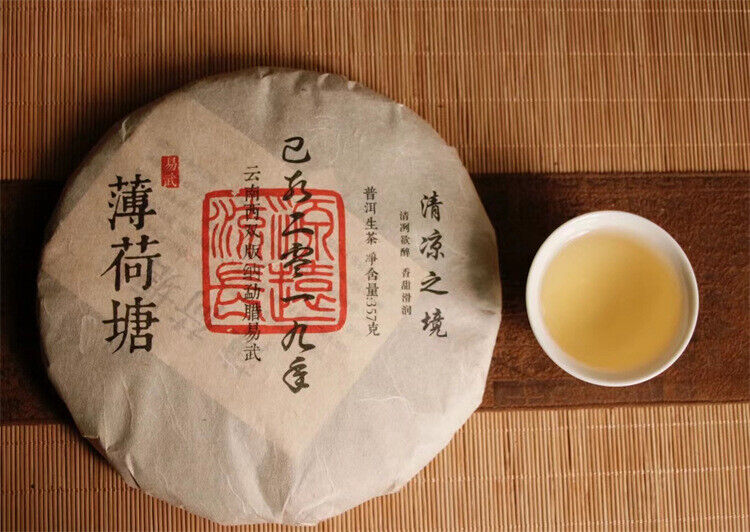 清凉之境
清冽欲醉 香甜滑润
普洱生茶 净含量:357克
己亥二零一九年
源遠流長
云南西双版纳勐腊易武
易武
薄荷塘